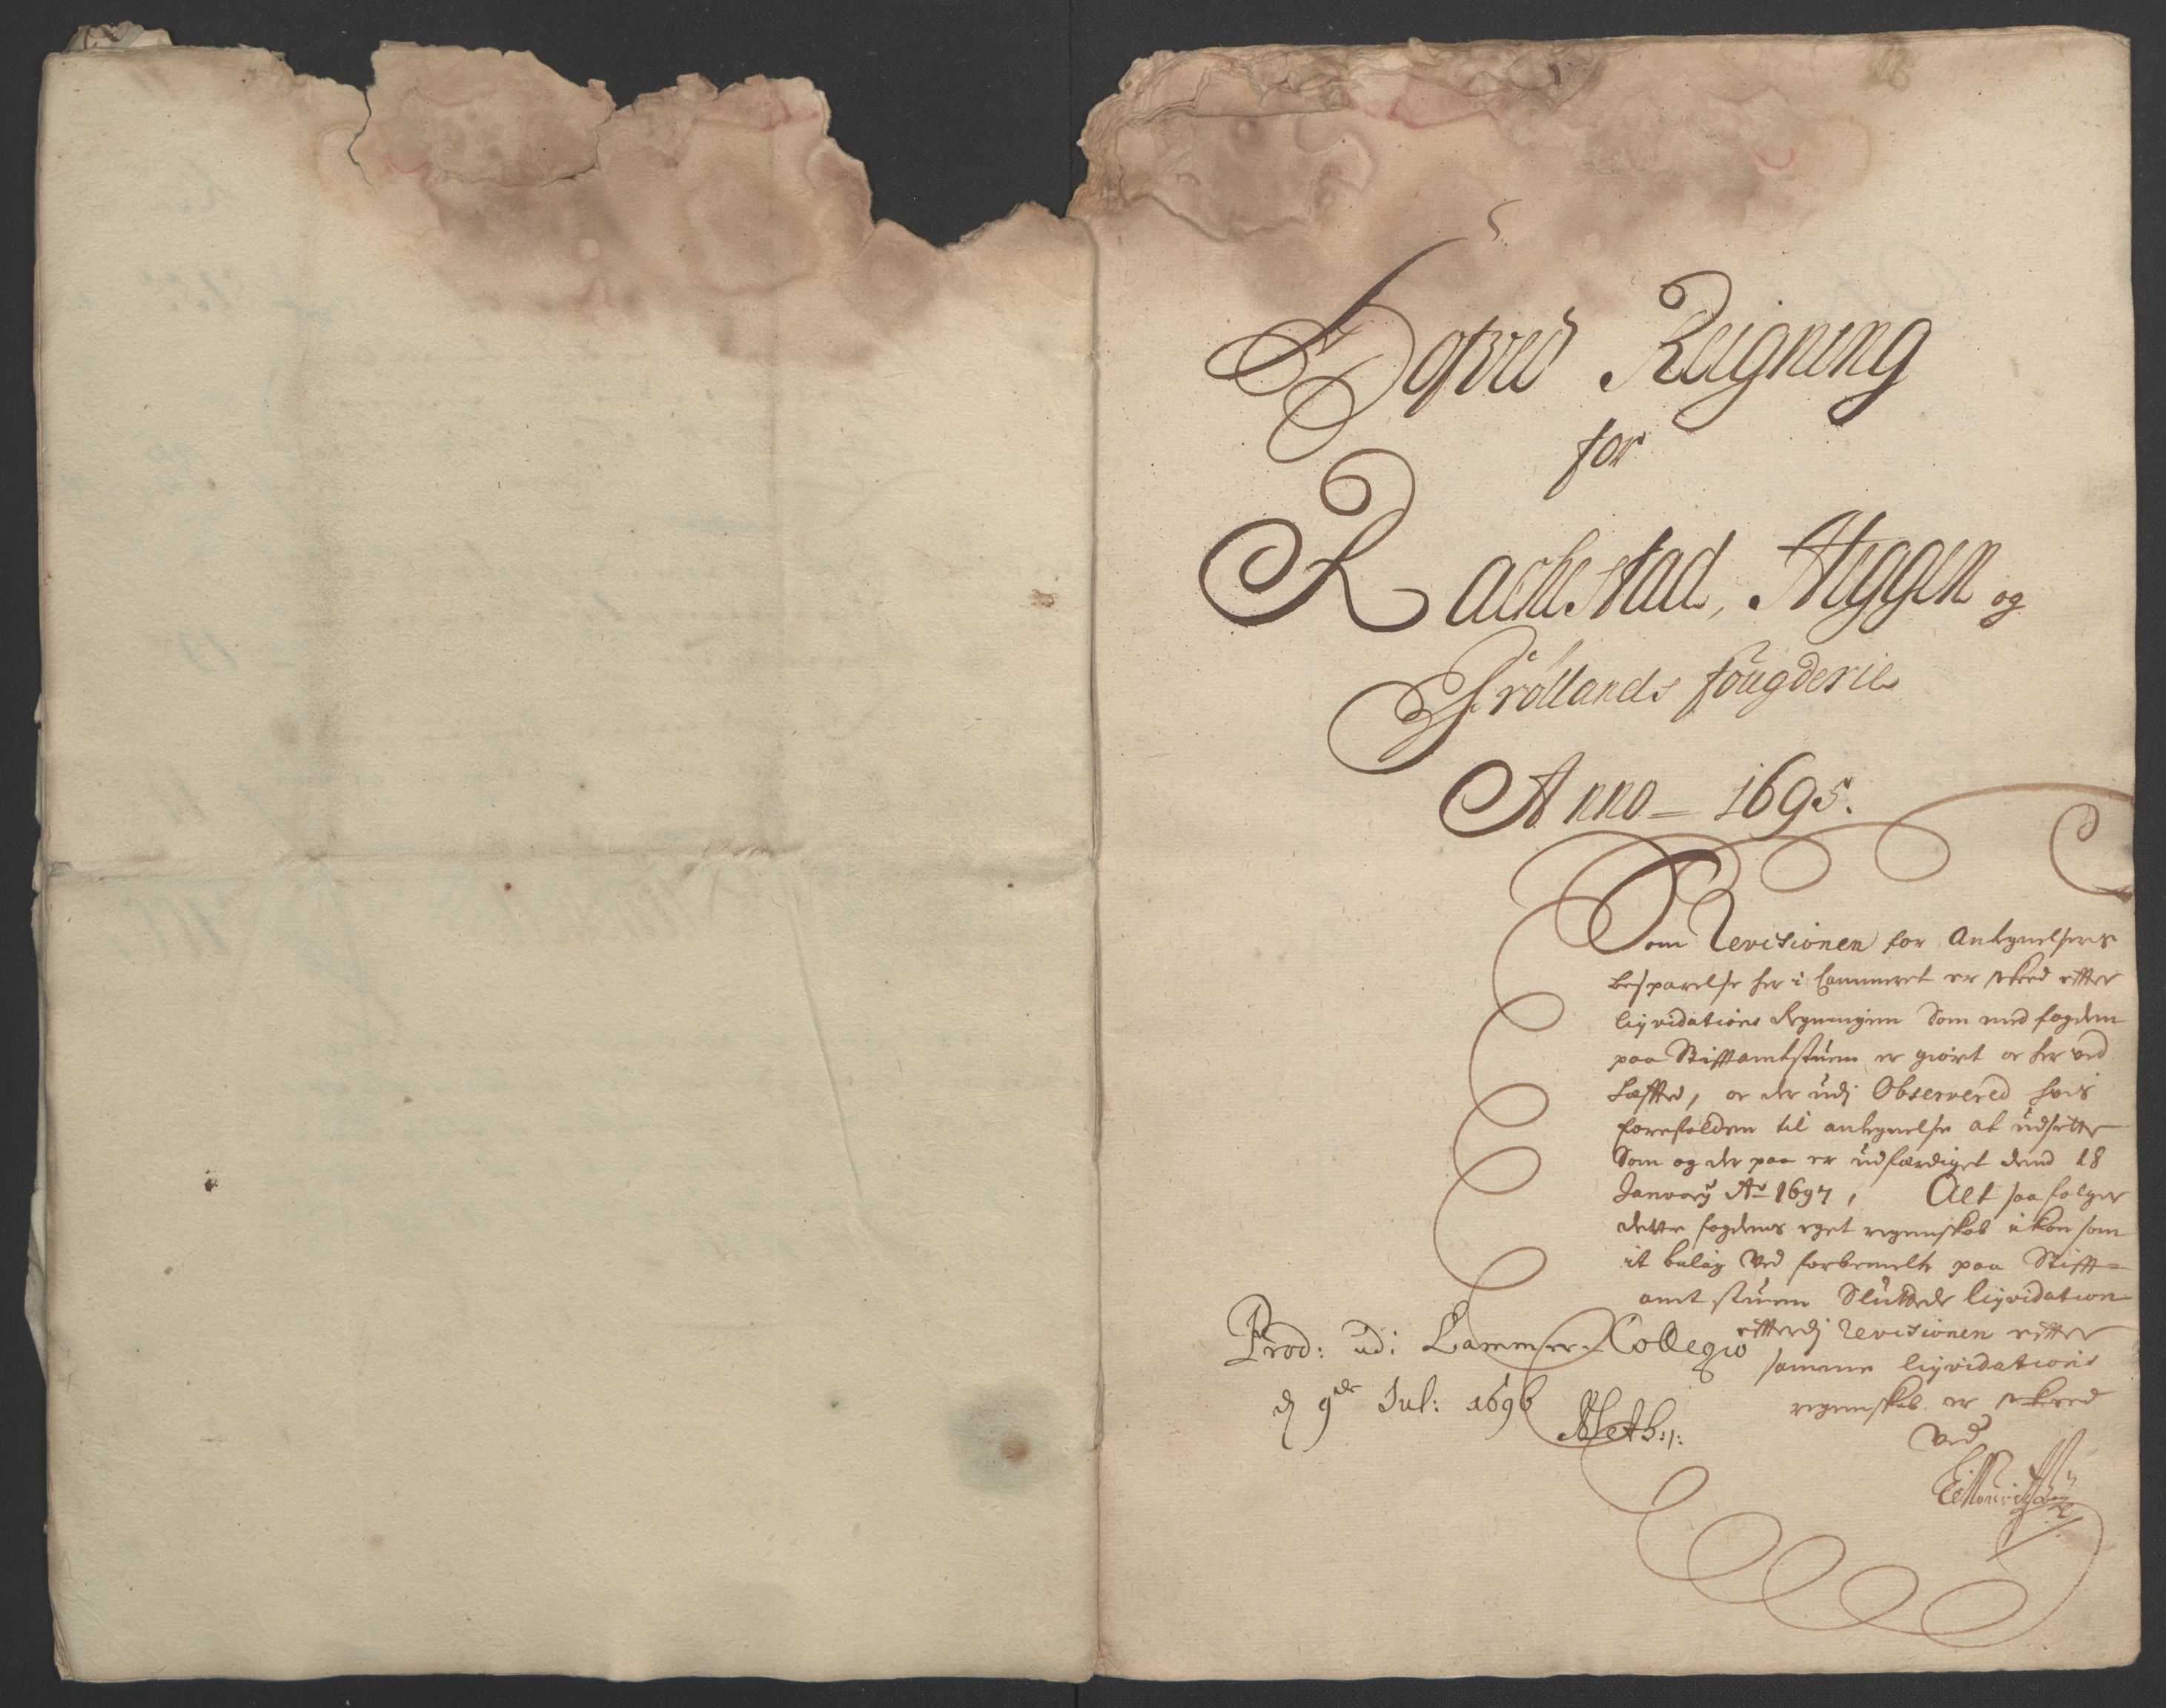 Hofved Reigning
for
Rachestad, Heggen og
Frøllands fougderie
Anno – 1695.
Som Revisionen for Antegnelsens
besparelse her i Cammeret er skeed efter
liqvidations Regningen Som med fogden
paa Stifftamtstuen er giort oc her ved
hefftet, oc der udj Observered hvis
forefalden til antegnelse at udsette
Som og der paa er udfærdiget dend 18
Januarij Ao 1697, Alt saa følger
dette fogdens eget regenskab ickon som
it belæg Ved forbemelte paa Stifft=
amt stuen Sluttede liqvidation
efterdj revisionen efter
samme liqvidations
regenskab er skeed
Ved
Prod: udi Cammer-Collegio
d 9de Jul: 1696